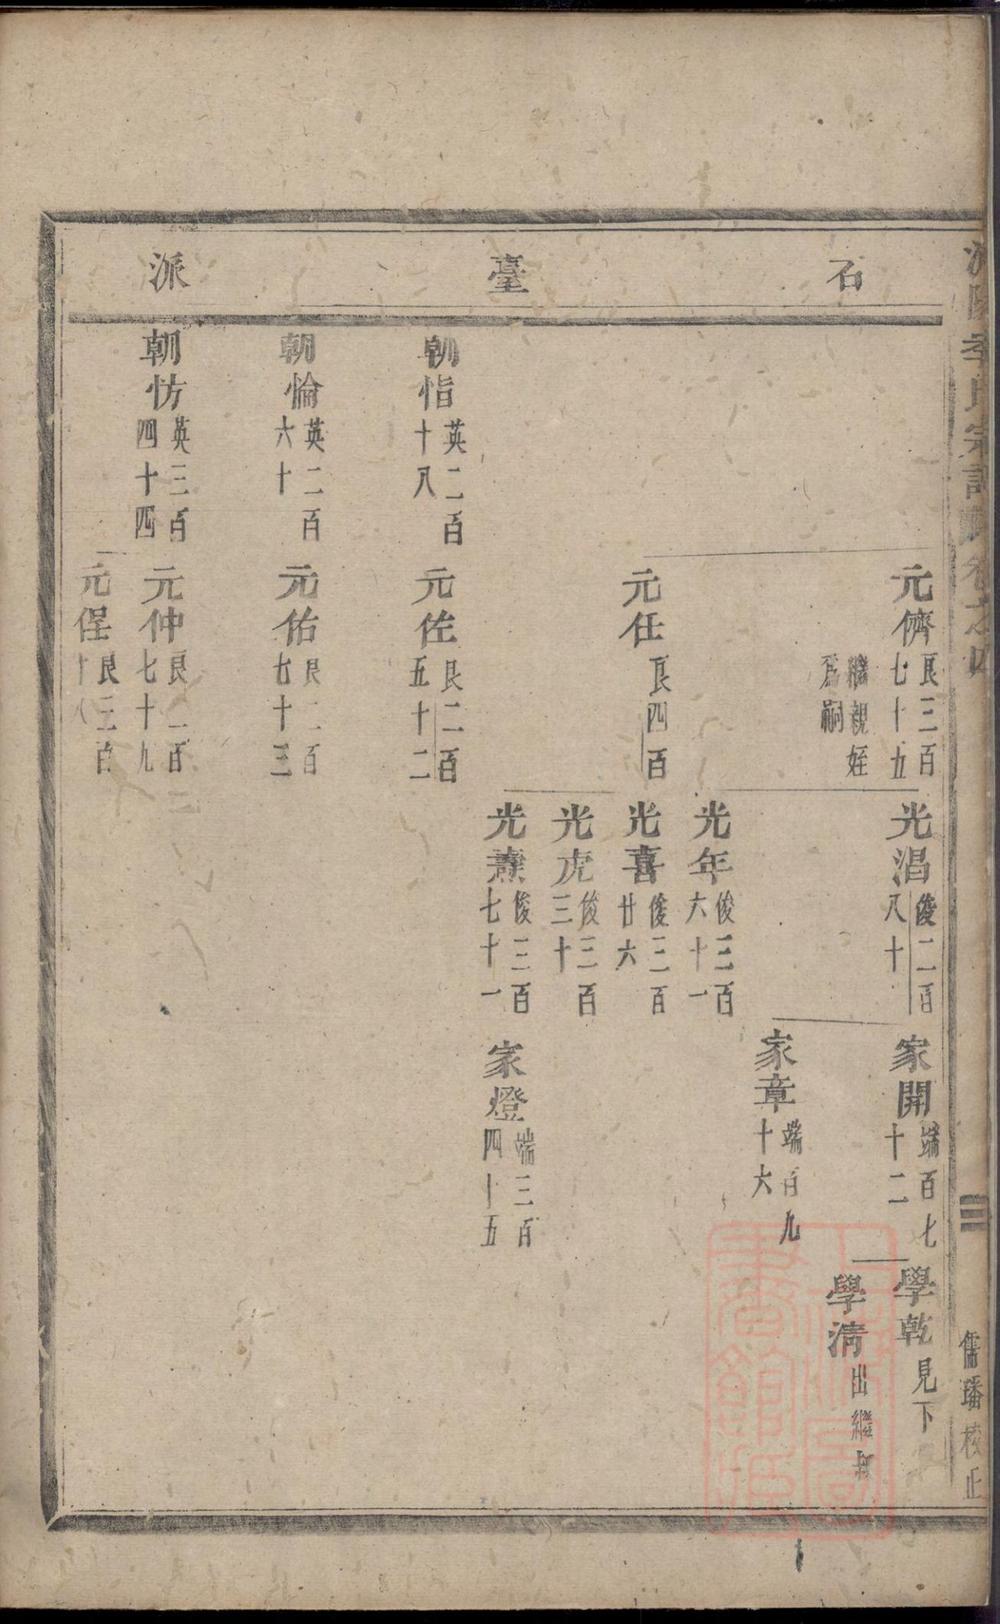 石臺派
李氏宗譜
卷之四
三
儒璠校正
元儕 艮三百七十五
繼親姪爲嗣
元任 艮四百
光淐 俊二百八十
光年 俊三百六十一
光喜 俊三百廿六
光虎 俊三百三十
光燾 俊三百七十一
家開 端百七十二
家章 端百九十六
家燈 端三百四十五
學乾 見下
學淸 出繼
朝恉 英二百十八
元佐 艮二百五十二
朝愉 英二百六十
元佑 艮二百七十三
朝恀 英三百四十四
元仲 艮二百七十九
元𠊻 艮三百十八